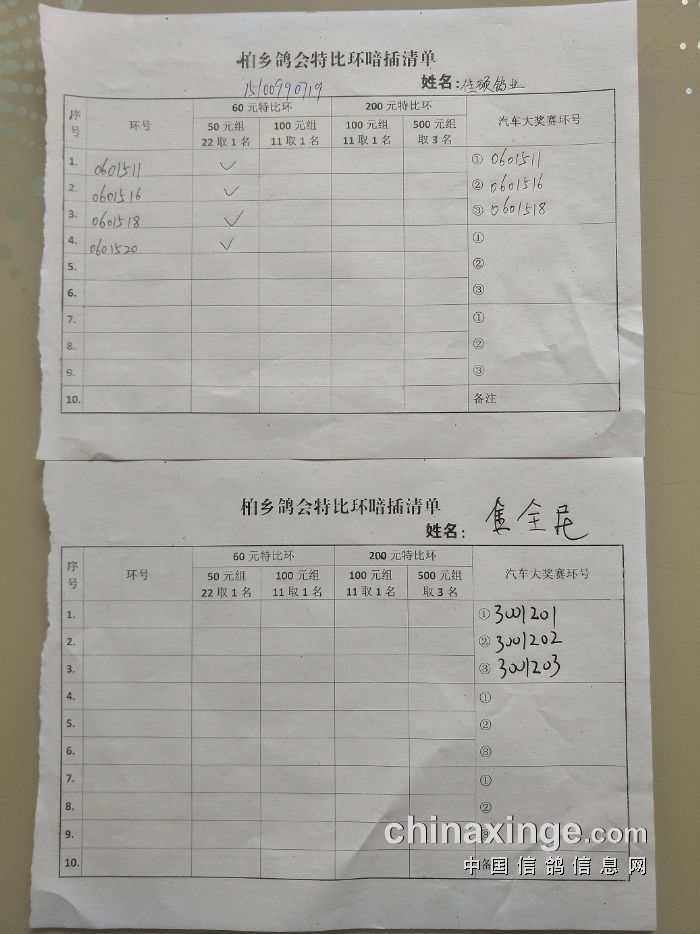 柏乡鸽会特比环暗插清单
15100990719 姓名:佳硕鸽业
序号 环号 60元特比环 200元特比环 汽车大奖赛环号
50元组 100元组 100元组 500元组
22取1名 11取1名 11取1名 取3名
1. 0601511 ✓ ① 0601511
2. 0601516 ✓ ② 0601516
3. 0601518 ✓ ③ 0601518
4. 0601520 ✓ ①
5. ②
6. ③
7. ①
8. ②
9. ③
10. 备注
柏乡鸽会特比环暗插清单
姓名: 焦全民
序号 环号 60元特比环 200元特比环 汽车大奖赛环号
50元组 100元组 100元组 500元组
22取1名 11取1名 11取1名 取3名
1. ① 3001201
2. ② 3001202
3. ③ 3001203
4. ①
5. ②
6. ③
7. ①
8. ②
9. ③
10. 备
chinaxinge.com
中国信鸽信息网